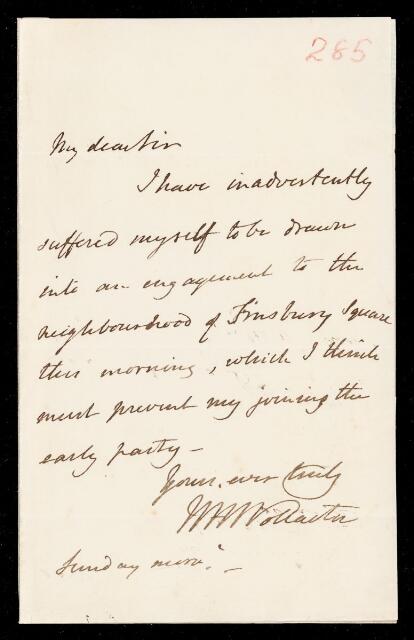 285
My dear Sir
I have inadvertently
suffered myself to be drawn
into an engagement to the
neighbourhood of Finsbury Square
this morning, which I think
must prevent my joining the
early party –
Yours ever truly
W H Wollaston
Sunday morng –